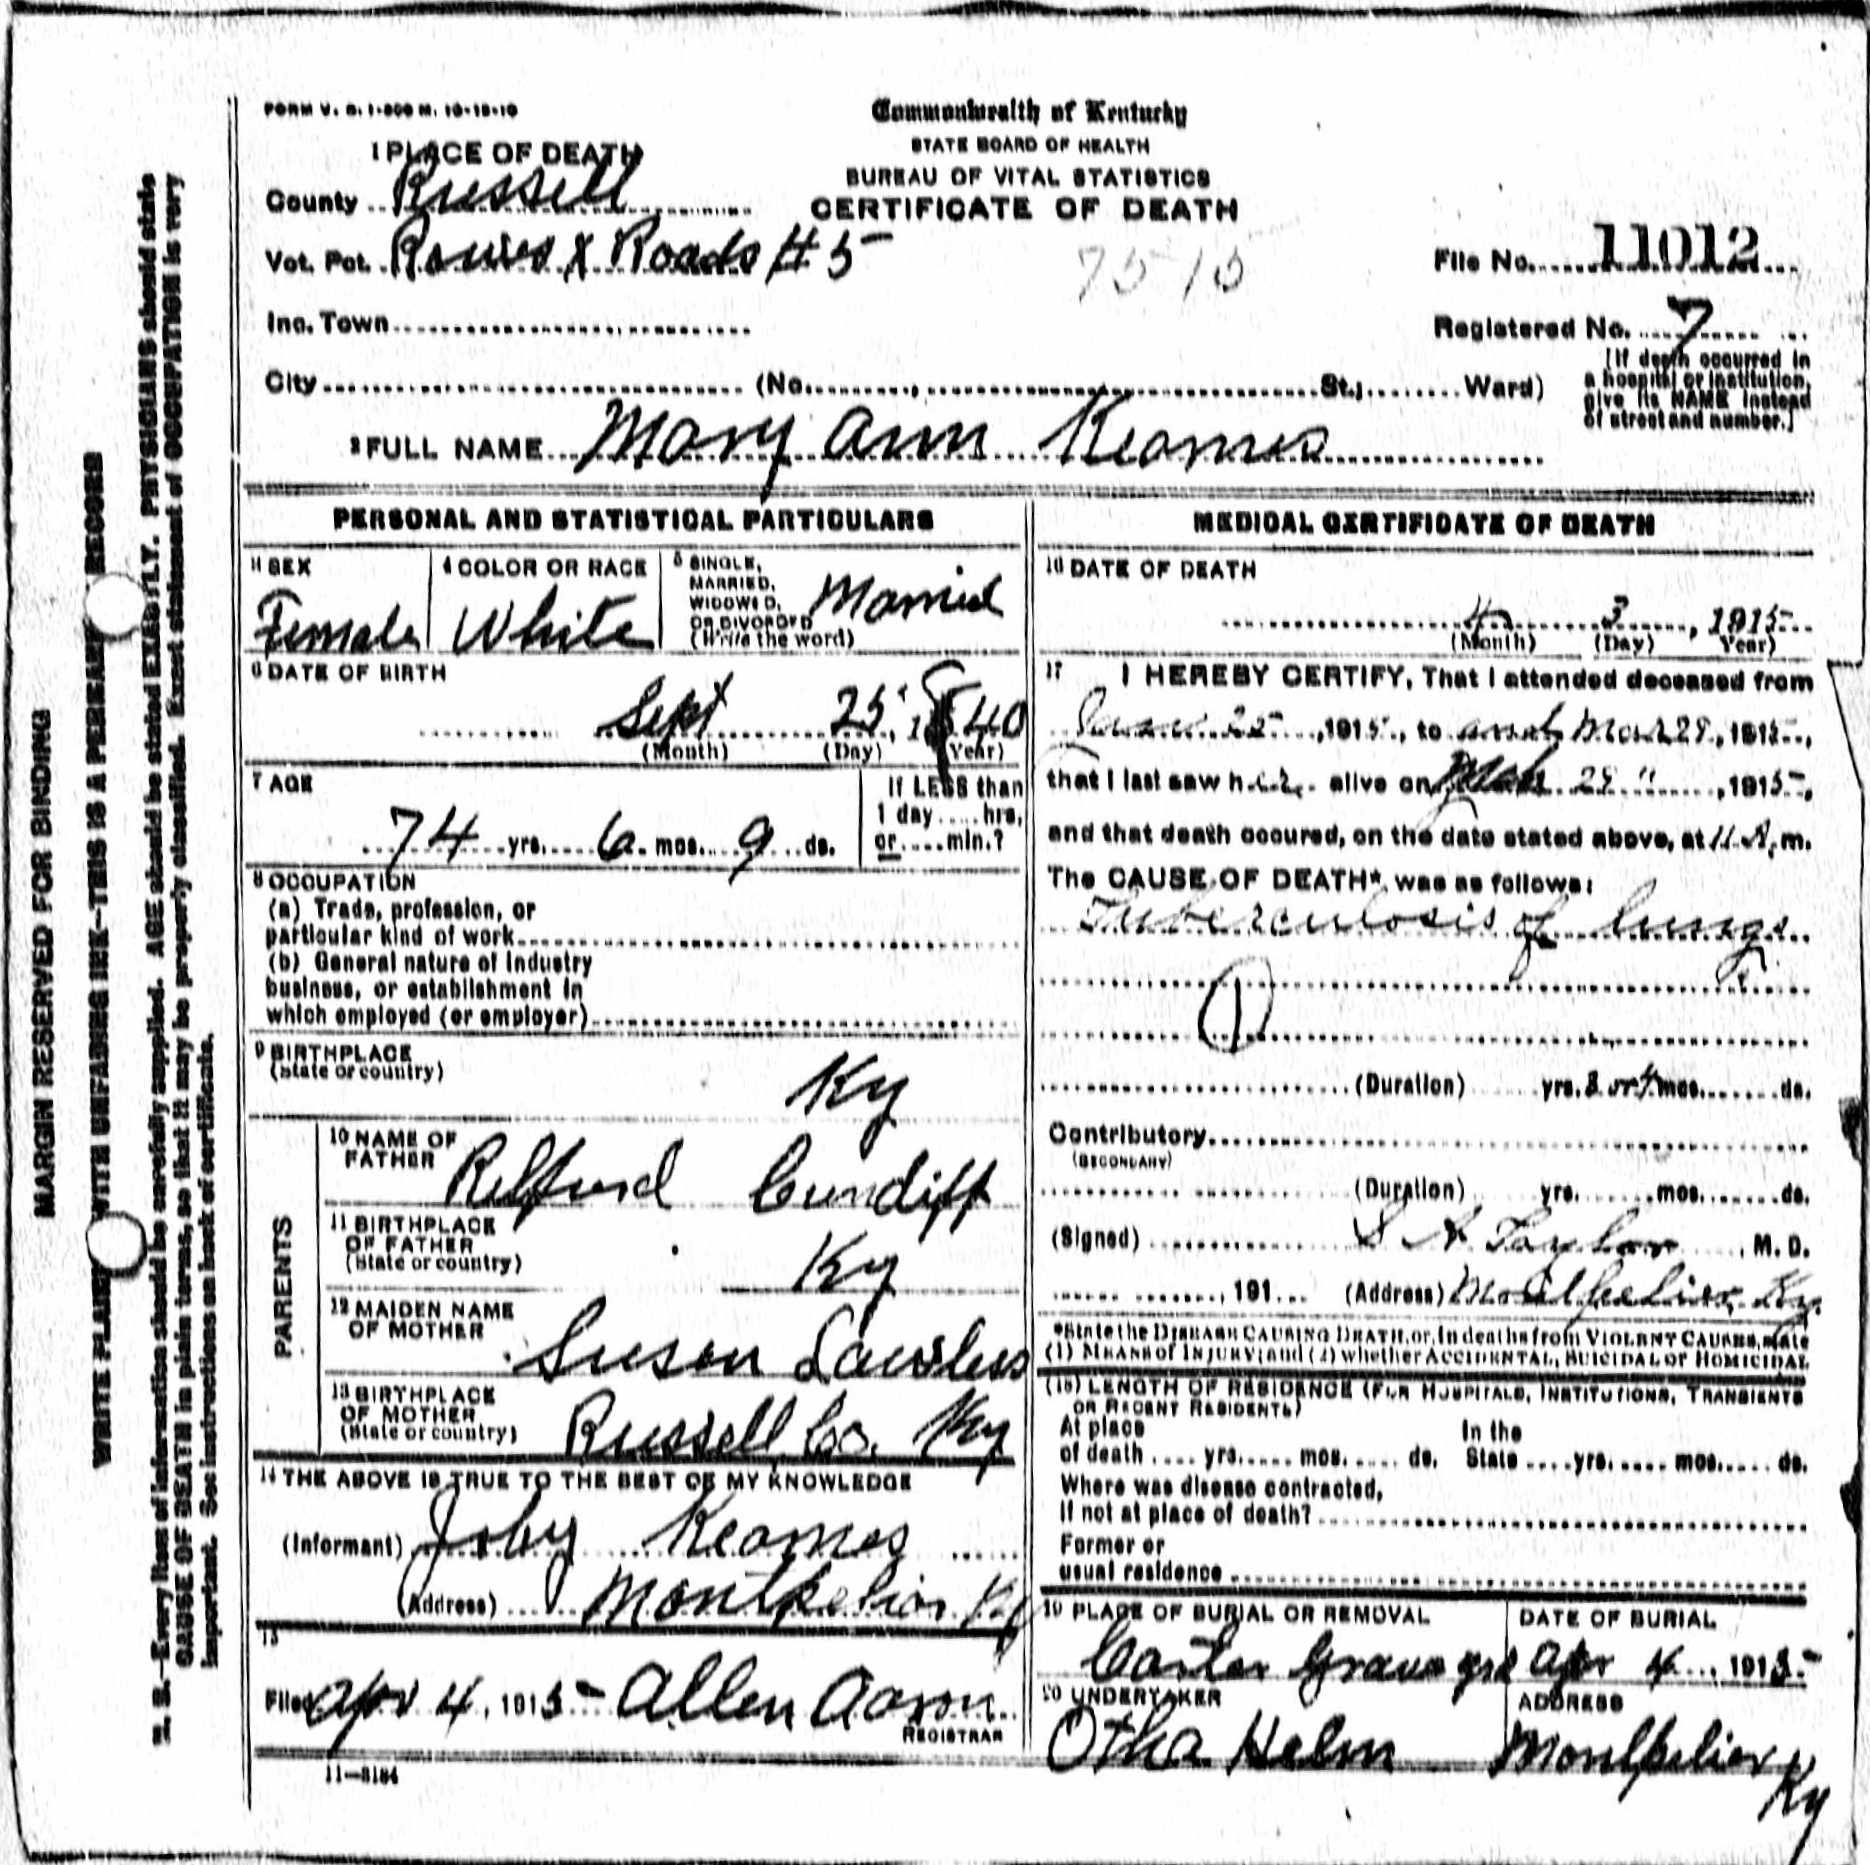 FORM V. S. 1-500 M. 10-18-10
Commonwealth of Kentucky
STATE BOARD OF HEALTH
BUREAU OF VITAL STATISTICS
CERTIFICATE OF DEATH
1 PLACE OF DEATH
County Russell
Vot. Pct. Rowes X Roads # 5
7515
File No. 11012
Inc. Town
Registered No. 7
City (No. , St.; Ward)
[If death occurred in
a hospital or institution,
give its NAME instead
of street and number.]
2 FULL NAME Mary Ann Keames
PERSONAL AND STATISTICAL PARTICULARS
3 SEX
Female
4 COLOR OR RACE
White
5 SINGLE,
MARRIED,
WIDOWED,
OR DIVORCED
(Write the word)
Married
6 DATE OF BIRTH
Sept 25, 1840
(Month) (Day) (Year)
7 AGE
74 yrs. 6 mos. 9 ds.
If LESS than
1 day hrs.
or min.?
8 OCCUPATION
(a) Trade, profession, or
particular kind of work
(b) General nature of Industry
business, or establishment in
which employed (or employer)
9 BIRTHPLACE
(State or country)
Ky
PARENTS
10 NAME OF
FATHER
Relford Cundiff
11 BIRTHPLACE
OF FATHER
(State or country)
Ky
12 MAIDEN NAME
OF MOTHER
Susan Lawless
13 BIRTHPLACE
OF MOTHER
(State or country)
Russell Co. Ky
14 THE ABOVE IS TRUE TO THE BEST OF MY KNOWLEDGE
(Informant) Joby Keames
(Address) Montpelier Ky
15
Filed Apr 4, 1915 Allen Aaron
REGISTRAR
11-3184
MEDICAL CERTIFICATE OF DEATH
16 DATE OF DEATH
4 3, 1915
(Month) (Day) Year)
17 I HEREBY CERTIFY, That I attended deceased from
25, 1915, to Mar 29, 1915,
that I last saw her alive on Mch 29", 1915,
and that death occured, on the date stated above, at 11 A. m.
The CAUSE OF DEATH* was as follows:
Tuberculosis of lungs
1
(Duration) yrs. 3 or 4 mos. ds.
Contributory
(SECONDARY)
(Duration) yrs. mos. ds.
(Signed) S A Taylor, M. D.
, 191 (Address) Montpelier, Ky.
*State the DISEASE CAUSING DEATH, or, in deaths from VIOLENT CAUSES, state
(1) MEANS of INJURY; and (2) whether ACCIDENTAL, SUICIDAL or HOMICIDAL
(18) LENGTH OF RESIDENCE (FOR HOSPITALS, INSTITUTIONS, TRANSIENTS
OR RECENT RESIDENTS)
At place
of death yrs. mos. ds.
In the
State yrs. mos. ds.
Where was disease contracted,
If not at place of death?
Former or
usual residence
19 PLACE OF BURIAL OR REMOVAL
Carter Grave yrd
DATE OF BURIAL
Apr 4, 1915
20 UNDERTAKER
Otha Helm
ADDRESS
Montpelier Ky
MARGIN RESERVED FOR BINDING
WRITE PLAINLY WITH UNFADING INK—THIS IS A PERMANENT RECORD
N. B.—Every item of information should be carefully supplied. AGE should be stated EXACTLY. PHYSICIANS should state
CAUSE OF DEATH in plain terms, so that it may be properly classified. Exact statement of OCCUPATION is very
important. See instructions on back of certificate.